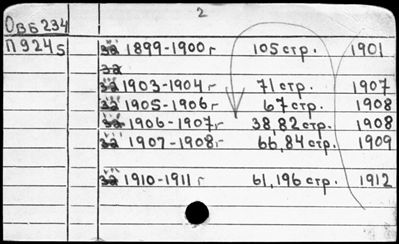 2
Овб234
П9245
за 1899-1900г 105 стр. 1901
за
за 1903-1904г 71 стр. 1907
за 1905-1906г 67 стр. 1908
за 1906-1907г 38,82 стр. 1908
за 1907-1908г 66,84 стр. 1909
за 1910-1911г 61,196 стр. 1912